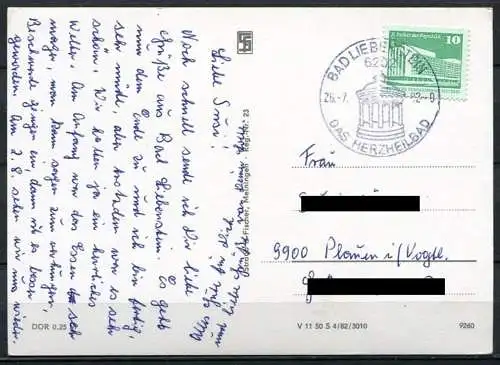 Liebe Susi!
Noch schnell sende ich Dir liebe
Grüße aus Bad Liebenstein. Es geht
nun dem Ende zu und ich bin fertig,
sehr müde, aber trotzdem war es sehr
schön. Wir hatten ja ein herrliches
Wetter. Am Anfang war das Essen sehr
mager, man kann sagen zum verhungern,
Beschwerde gingen ein, dann ist es besser
geworden. Am 2.8. sehen wir uns wieder.
BAD LIEBENSTEIN
6202
26.-7. 82-9
DAS HERZHEILBAD
10
Frau
9900 Plauen i/Vogtl.
Straub & Fischer, Meiningen · Reg.-Nr.: 23
DDR 0,25
V 11 50 S 4/82/3010
9260